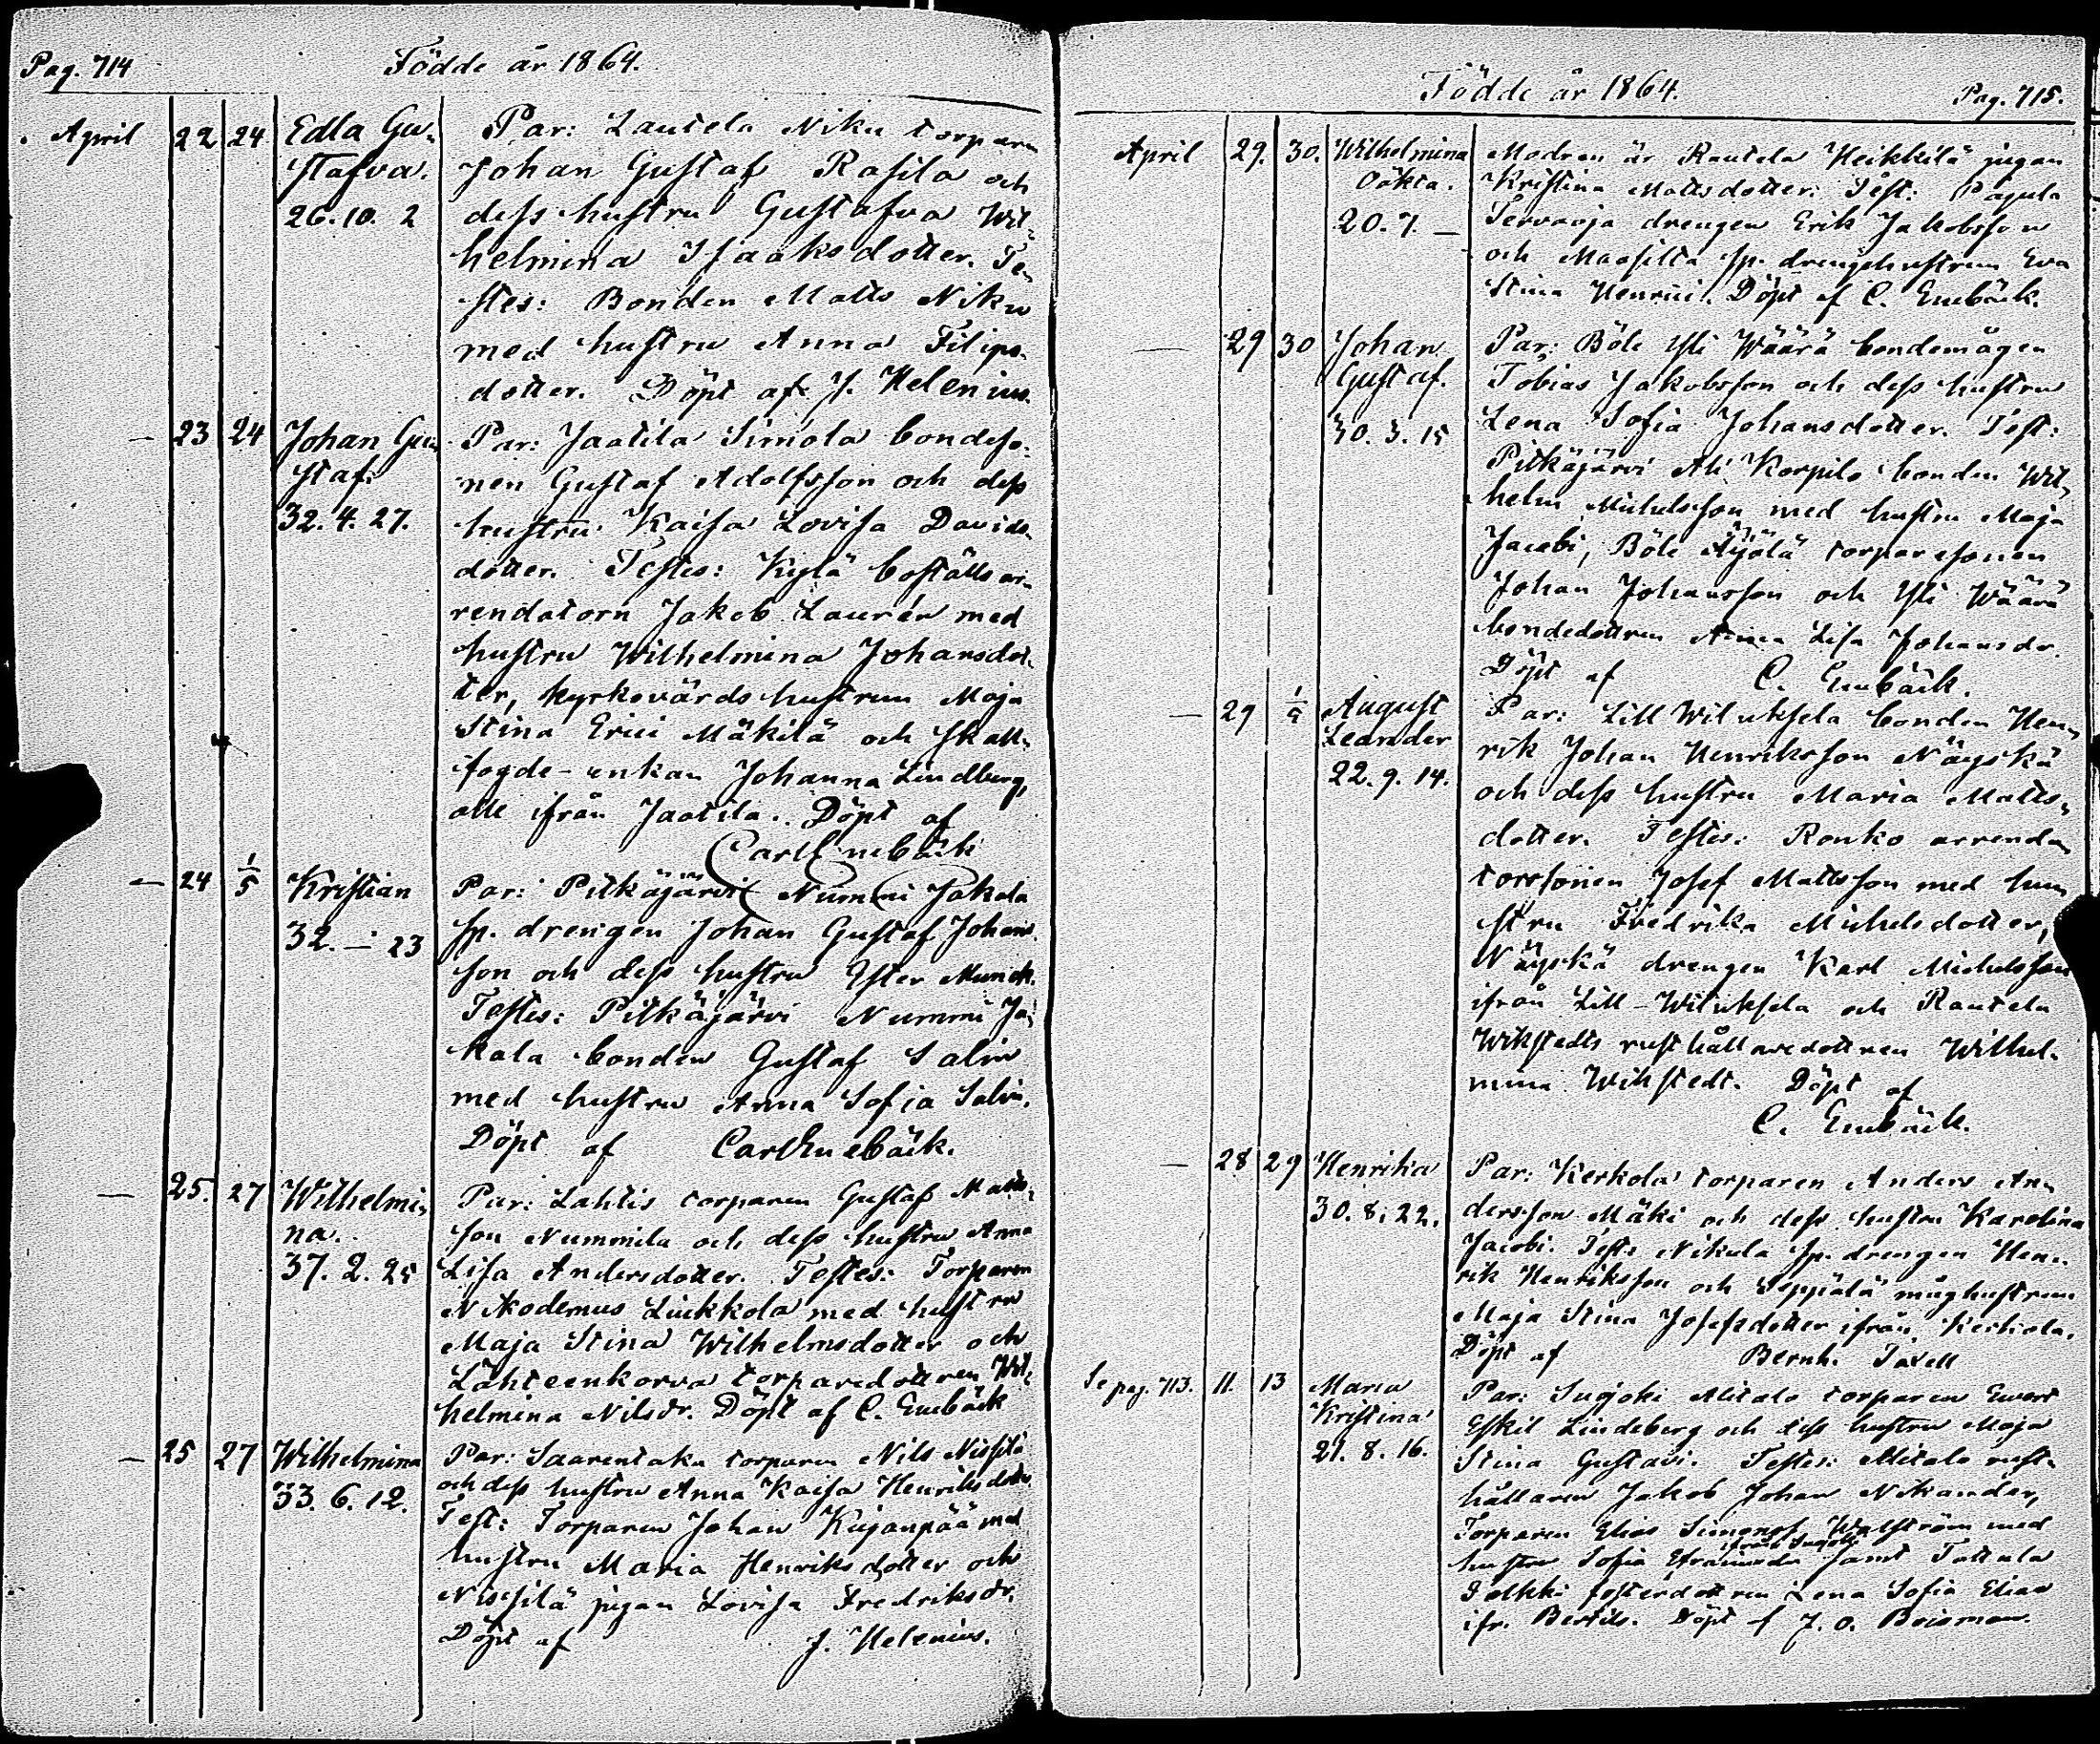 Pag. 714
Födde år 1864.
April 22 24 Edla Gu- Par: Lautela Niku torparn
stafva. Johan Gustaf Rasila och
26. 10. 2 dess hustru Gustafva Wil-
helmina Isaaksdotter. Te-
stes: Bonden Matts Niku
med hustru Anna Filips-
dotter. Döpt af J. Helenius.
— 23 24 Johan Gu- Par: Jaatila Simola bondeso-
staf. nen Gustaf Adolfsson och dess
32. 4. 27. hustru Kaisa Lovisa Davids-
dotter. Testes: Kylä boställsar-
rendatorn Jakob Laurén med
hustru Wilhelmina Johansdot-
ter, kyrkovärdshustrun Maja
Stina Erici Mäkilä och skall-
fogde-enkan Johanna Lindberg,
alle ifrån Jaatila. Döpt af
Carl Enebäck
— 24 1/5 Kristian Par: Pitkäjärvi Nummi Jakala
32. — 23 sp. drengen Johan Gustaf Johans-
son och dess hustru Ester Munck.
Testes: Pitkäjärvi Nummi Ja-
kala bonden Gustaf Salin
med hustru Anna Sofia Salin.
Döpt af Carl Enebäck.
— 25. 27 Wilhelmi- Par: Lahtis torparen Gustaf Matts-
na. son Nummila och dess hustru Anna
37. 2. 25 Lisa Andersdotter. Testes: Torparen
Nikodemus Liukkola med hustru
Maja Stina Wilhelmsdotter och
Lähteenkorva torparedottren Wil-
helmina Nilsdr. Döpt af C. Enebäck
— 25 27 Wilhelmina Par: Saarentaka torparen Nils Nissilä
33. 6. 12. och dess hustru Anna Kaisa Henriksdotter.
Test: Torparen Johan Kujanpää med
hustru Maria Henriksdotter och
Nissilä pigan Lovisa Fredriksdr.
Döpt af J. Helenius.
Födde år 1864.
Pag. 715.
April 29. 30. Wilhelmina Modren är Rautela Heikkilä pigan
Oäkta. Kristina Mattsdotter. Test: Papula
20. 7. — Tervaoja drengen Erik Jakobsson
och Maasilta sp. drengehustrun Eva
Stina Henrici. Döpt af C. Enebäck.
— 29 30 Johan Par: Böle Yli Wäärä bondemågen
Gustaf. Tobias Jakobsson och dess hustru
30. 3. 15 Lena Sofia Johansdotter. Test:
Pitkäjärvi Ali Korpilo bonden Wil-
helm Michelsson med hustru Maja
Jacobi, Böle Äijälä torparesonen
Johan Johansson och Yli Wäärä
bondedottren Anna Lisa Johansdr.
Döpt af C. Enebäck.
— 29 August Par: Lill Wiluksela bonden Hen-
Leander rik Johan Henriksson Näyskä
22. 9. 14. och dess hustru Maria Matts-
dotter. Testes: Ronko arrenda-
torssonen Josef Mattsson med hu-
stru Fredrika Michelsdotter,
Näyskä drengen Karl Michelsson
ifrån Lill-Wiluksela och Rautela
Wikstedts rusthållaredottren Wilhel-
mina Wikstedt. Döpt af
C. Enebäck.
— 28 29 Henrika Par: Kerkola torparen Anders An-
30. 8. 22. dersson Mäki och dess hustru Karolina
Jacobi. Test: Nikula sp. drengen Hen-
rik Henriksson och Seppälä måghustrun
Maja Stina Josefsdotter ifrån Kerkola.
Döpt af Bernh. Taxell
Se pag. 713. 11. 13 Maria Par: Suojoki Alitalo torparen Evert
Kristina Eskil Lindeberg och dess hustru Maja
21. 8. 16. Stina Gustavi. Testes: Alitalo rust-
hållaren Jakob Johan Nikander,
Torparen Elias Simonss. Walström med
ifrån Suojoki
hustru Sofia Efraimsdr samt Tattula
Polkki fosterdottren Lena Sofia Elias
ifr. Bertils. Döpt af J. O. Boisman.